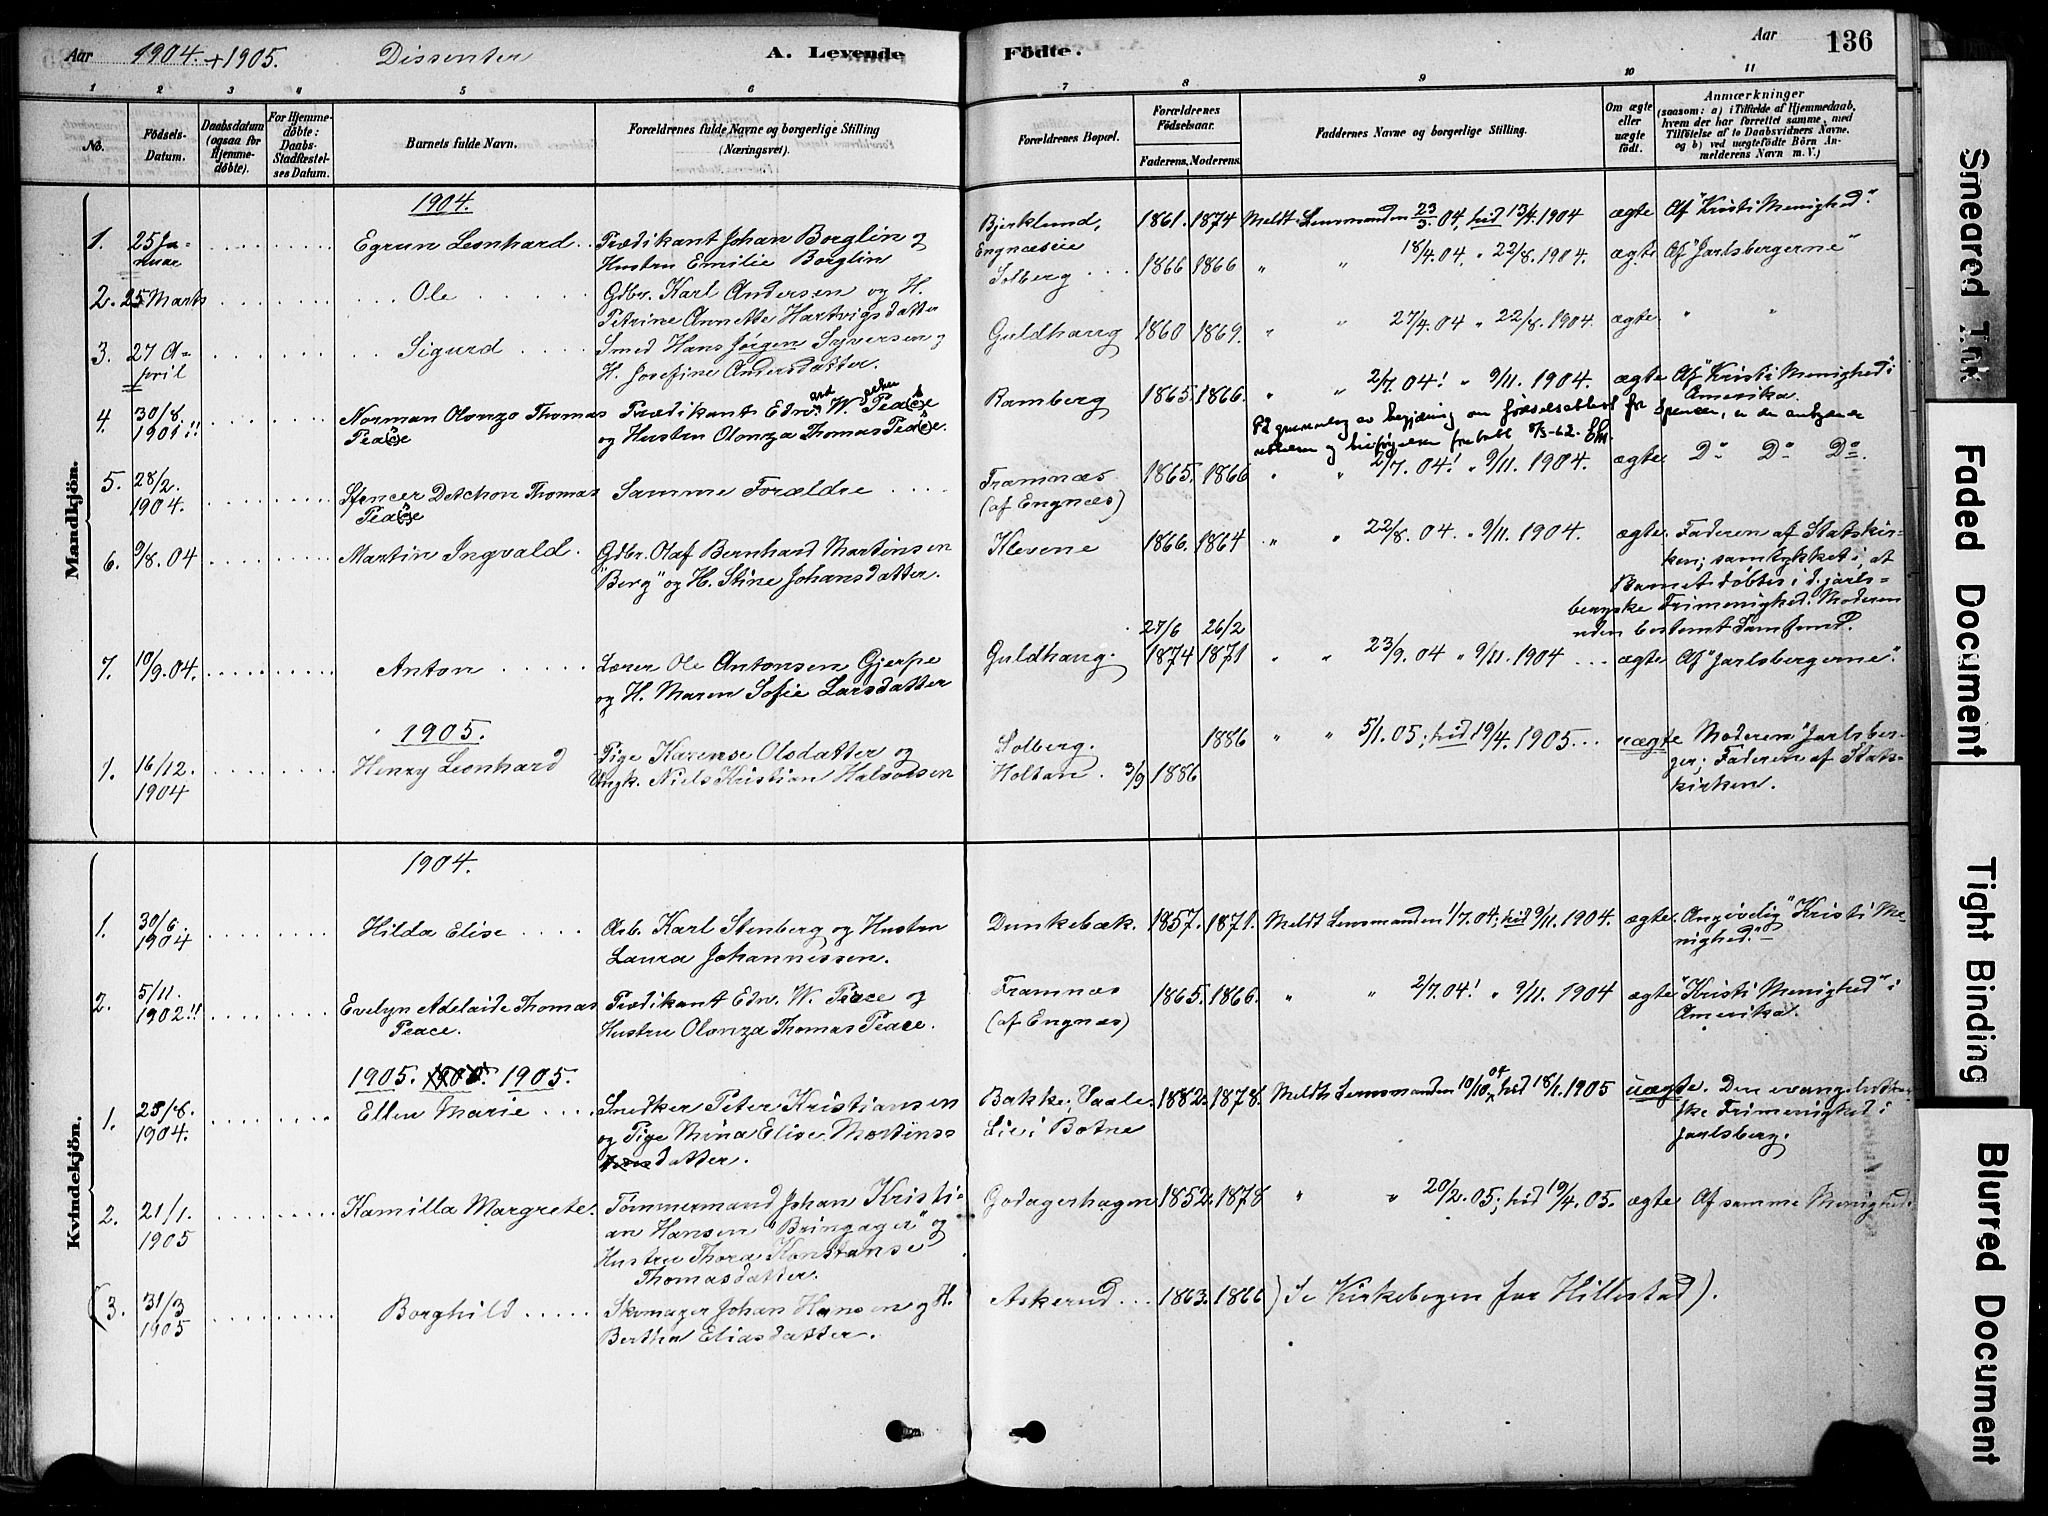 Aar 1904 + 1905. Dissenter A. Levende Födte. Aar 136
1 2 3 4 5 6 7 8 9 10 11
No.
Födsels-Datum.
Daabsdatum (ogsaa for Hjemme-døbte).
For Hjemme-døbte: Daabs-Stadfæstel-ses Datum.
Barnets fulde Navn.
Forældrenes fulde Navne og borgerlige Stilling (Næringsvei).
Forældrenes Bopæl.
Forældrenes Födselsaar.
Faderens. Moderens.
Faddernes Navne og borgerlige Stilling.
Om ægte eller uægte födt.
Anmærkninger
(saasom: a) i Tilfælde af Hjemmedaab, hvem der har forrettet samme, med Tilföielse af to Daabsvidners Navne, og b) ved uægtefödte Börn An-melderens Navn m. V.)
Mandkjön.
1904.
1. 25 Ja-nuar Egrun Leonhard Prædikant Johan Borglin og
Hustru Emilie Borglin
Bjerklund, Engnæseie 1861. 1874 Meldt Lensmanden 23/3.04, hid 13/4.1904 ægte Af "Kristi Menighed".
2. 25 Marts Ole Gdbr. Karl Andersen og H.
Petrine Annette Hartvigsdatter
Solberg 1866 1866 " " 18/4.04, " 22/8.1904. ægte Af "Jarlsbergerne"
3. 27 A-pril Sigurd Smed Hans Jørgen Syversen og
H. Josefine Andersdatter.
Guldhaug 1860 1869. " " 27/4.04 " 22/8.1904. ægte. " "
4. 30/8. 1901!! Norman Olonzo Thomas Peace Prædikant Edw. W. Peace
og Hustru Olonza Thomas Peace.
Ramberg 1865. 1866. " " 2/7.04! " 9/11.1904. ægte Af "Kristi Menighed i
Amerika.
På grunnlag av begjæring om fødselsattest for Spencer, er de
5. 28/2. 1904. Spencer Detchon Thomas Peace Samme Forældre
Framnæs (af Engnæs) 1865. 1866 " " 2/7.04! " 9/11.1904. ægte. Do Do Do.
6. 9/8.04 Martin Ingvald. Gdbr. Olaf Bernhard Martinsen
"Berg" og H. Stine Johansdatter.
Klevene 1866. 1864 " " 22/8.04. " 9/11.1904. ægte. Faderen af Statskir-
ken; samtykket i, at
Barnet døbtes i d. jarls-
bergske Frimenighed. Moderen
uden bestemt Samfund.
7. 10/9.04. Anton Lærer Ole Antonsen Gjerpe
og H. Maren Sofie Larsdatter
Guldhaug. 27/6 1874 26/2 1871 " " 23/9.04 " 9/11.1904 ægte. Af "Jarlsbergerne".
1905.
1. 16/12. 1904 Henry Leonhard Pige Karense Olsdatter og
Ungk. Niels Kristian Halvorsen
Solberg. 1886 " " 5/1.05; hid 19/4.1905 uægte Moderen "Jarlsber-
Holtan. 3/9 1886 ger; Faderen af Stats-
kirken.
Kvindekjön.
1904.
1. 30/6. 1904 Hilda Elise Arb. Karl Stenberg og Hustru
Laura Johannessen.
Dunkebæk. 1857. 1871. Meldt Lensmanden 1/7.04; hid 9/11.1904. ægte. Angivelig "Kristi Me-
nighed."
2. 5/11. 1902!! Evelyn Adelaide Thomas Peace. Prædikant Edw. W. Peace og
Hustru Olonza Thomas Peace.
Framnæs (af Engnæs) 1865. 1866. " " 2/7.04! " 9/11.1904 ægte "Kristi Menighed" i
Amerika.
1905. 1905.
1. 25/8. 1904. Ellen Marie Snedker Peter Kristiansen
og Pige Mina Elise Martins
datter.
Bakke, Vaale. 1882. 1878. Meldt Lensmanden 10/10.04, hid 18/1.1905 uægte. Den evangelisk-luther-
Lie i Botne ske Frimenighed i
Jarlsberg.
2. 21/1. 1905 Kamilla Margrete. Tømmermand Johan Kristi-
an Hansen "Bringager" og
Hustru Thora Konstanse
Thomasdatter.
Godagerhagen 1852. 1878 " " 20/2.05; hid 19/4.05. ægte Af samme Menighed.
(3. 31/3 1905 Borghild Skomager Johan Hansen og H.
Berthe Eliasdatter.
Askerud 1863. 1866) Se Kirkebogen for Hillestad).
Smeared Ink
Faded Document
Tight Binding
Blurred Document